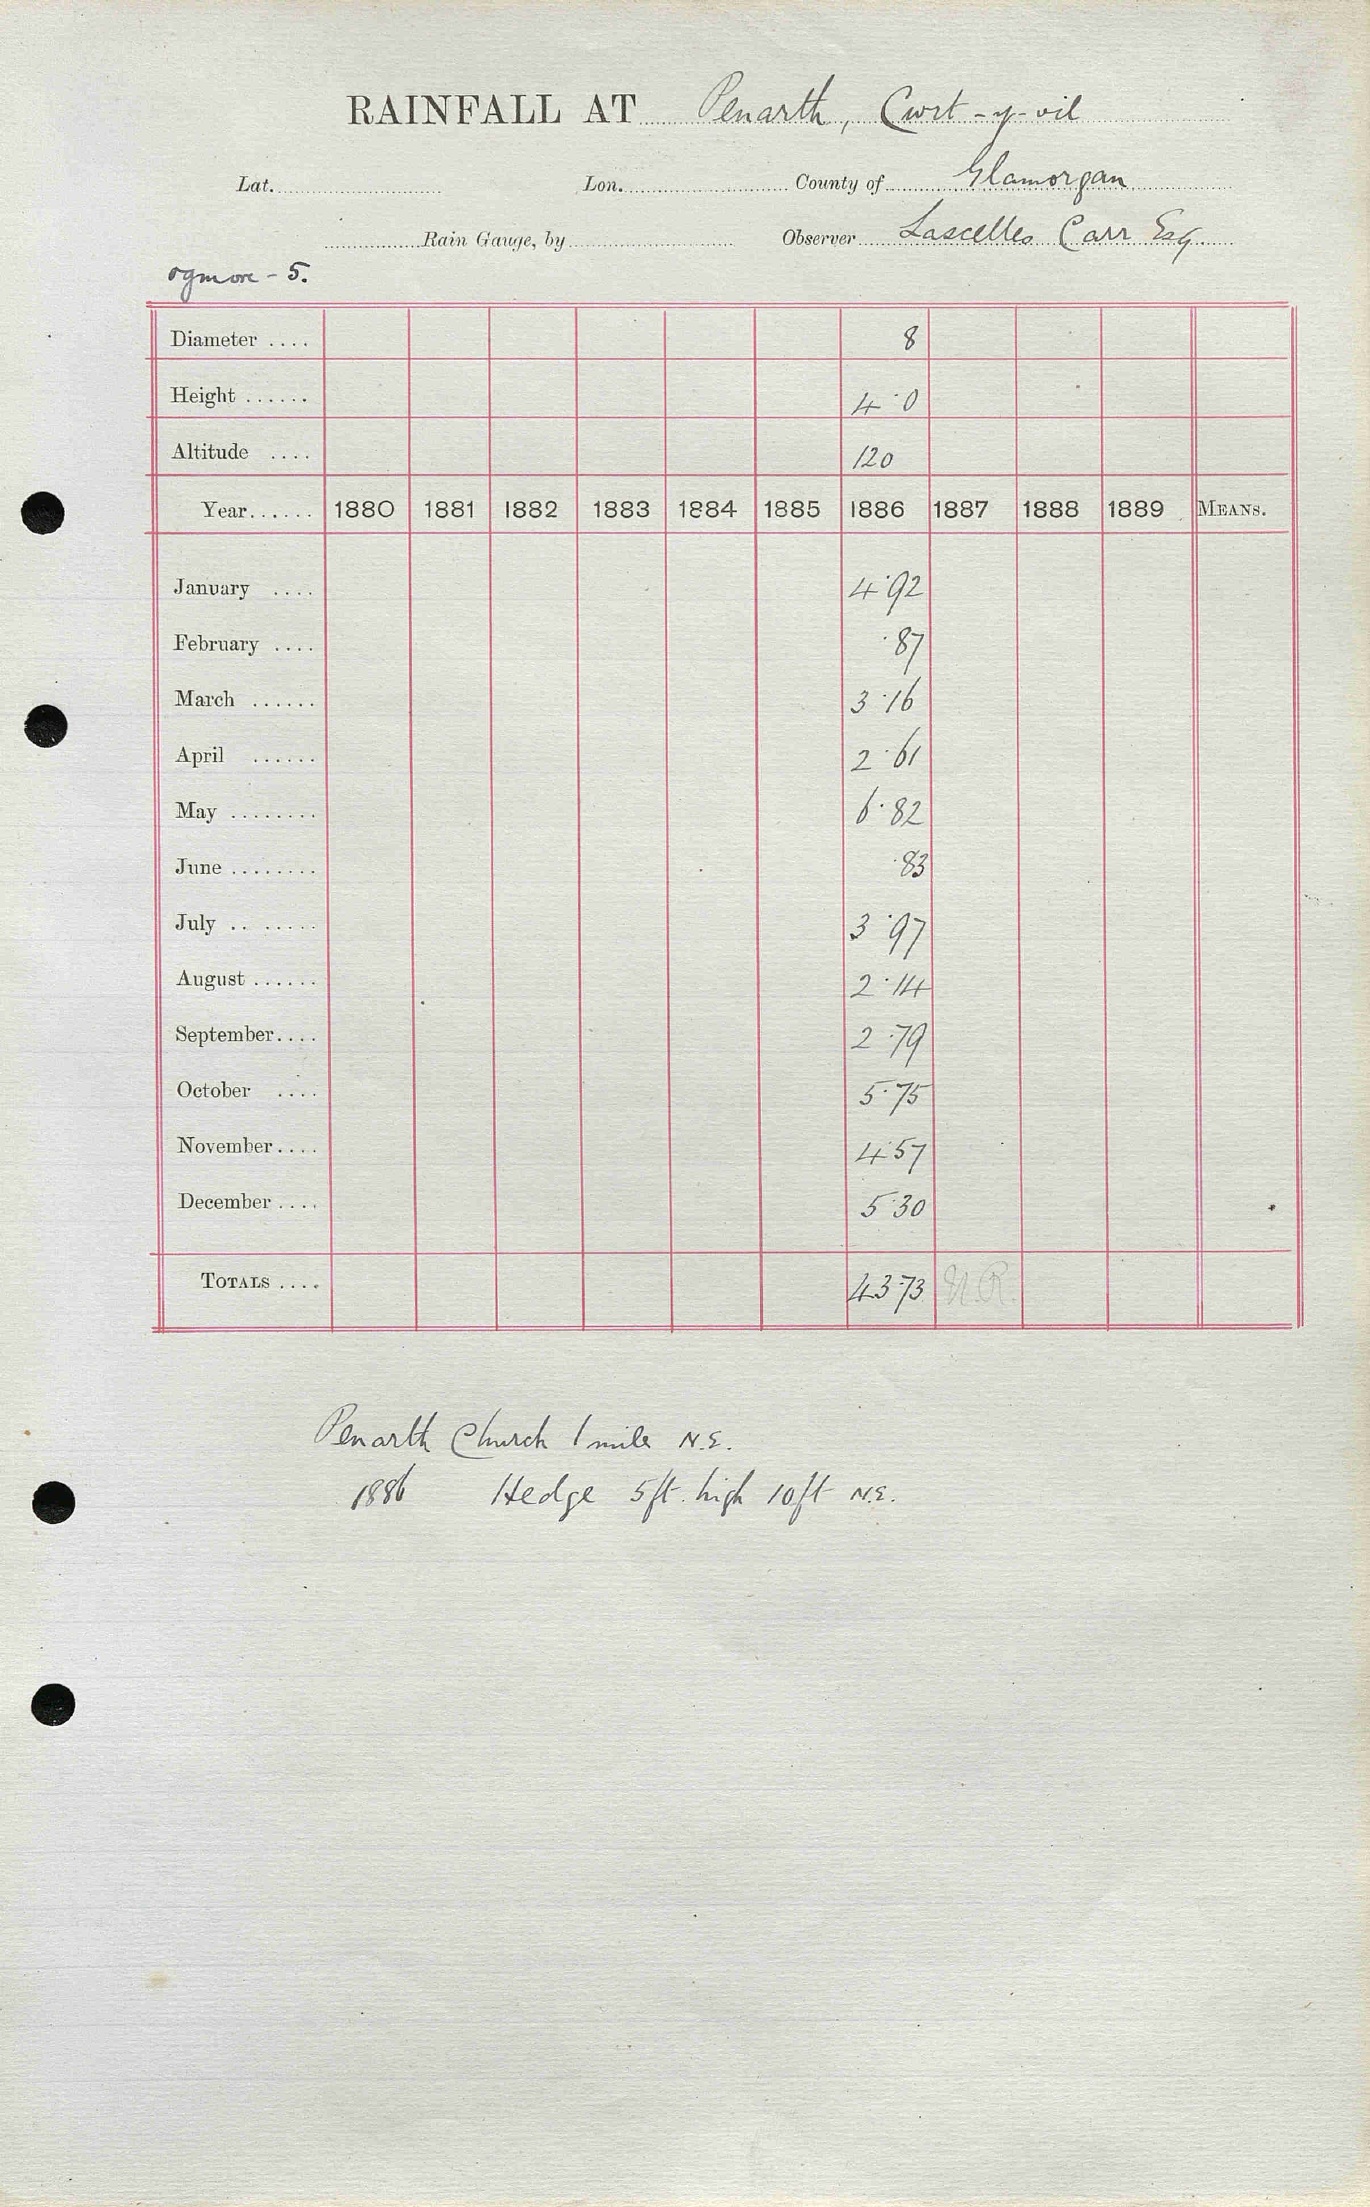 RAINFALL AT Penarth, Cwrt-y-vil
Lat. Lon. County of Glamorgan
Rain Gauge, by Observer Lascelles Carr Esq
Ogmore - 5.
Diameter .... 8
Height ...... 4.0
Altitude .... 120
Year...... 1880 1881 1882 1883 1884 1885 1886 1887 1888 1889 MEANS.
January .... 4.92
February .... .87
March ...... 3.16
April ...... 2.61
May ........ 6.82
June ........ .83
July .. ..... 3.97
August ...... 2.14
September.... 2.79
October .... 5.75
November.... 4.57
December .... 5.30
TOTALS .... 43.73 N.R.
Penarth Church 1 mile N.E.
1886 Hedge 5ft. high 10ft N.E.